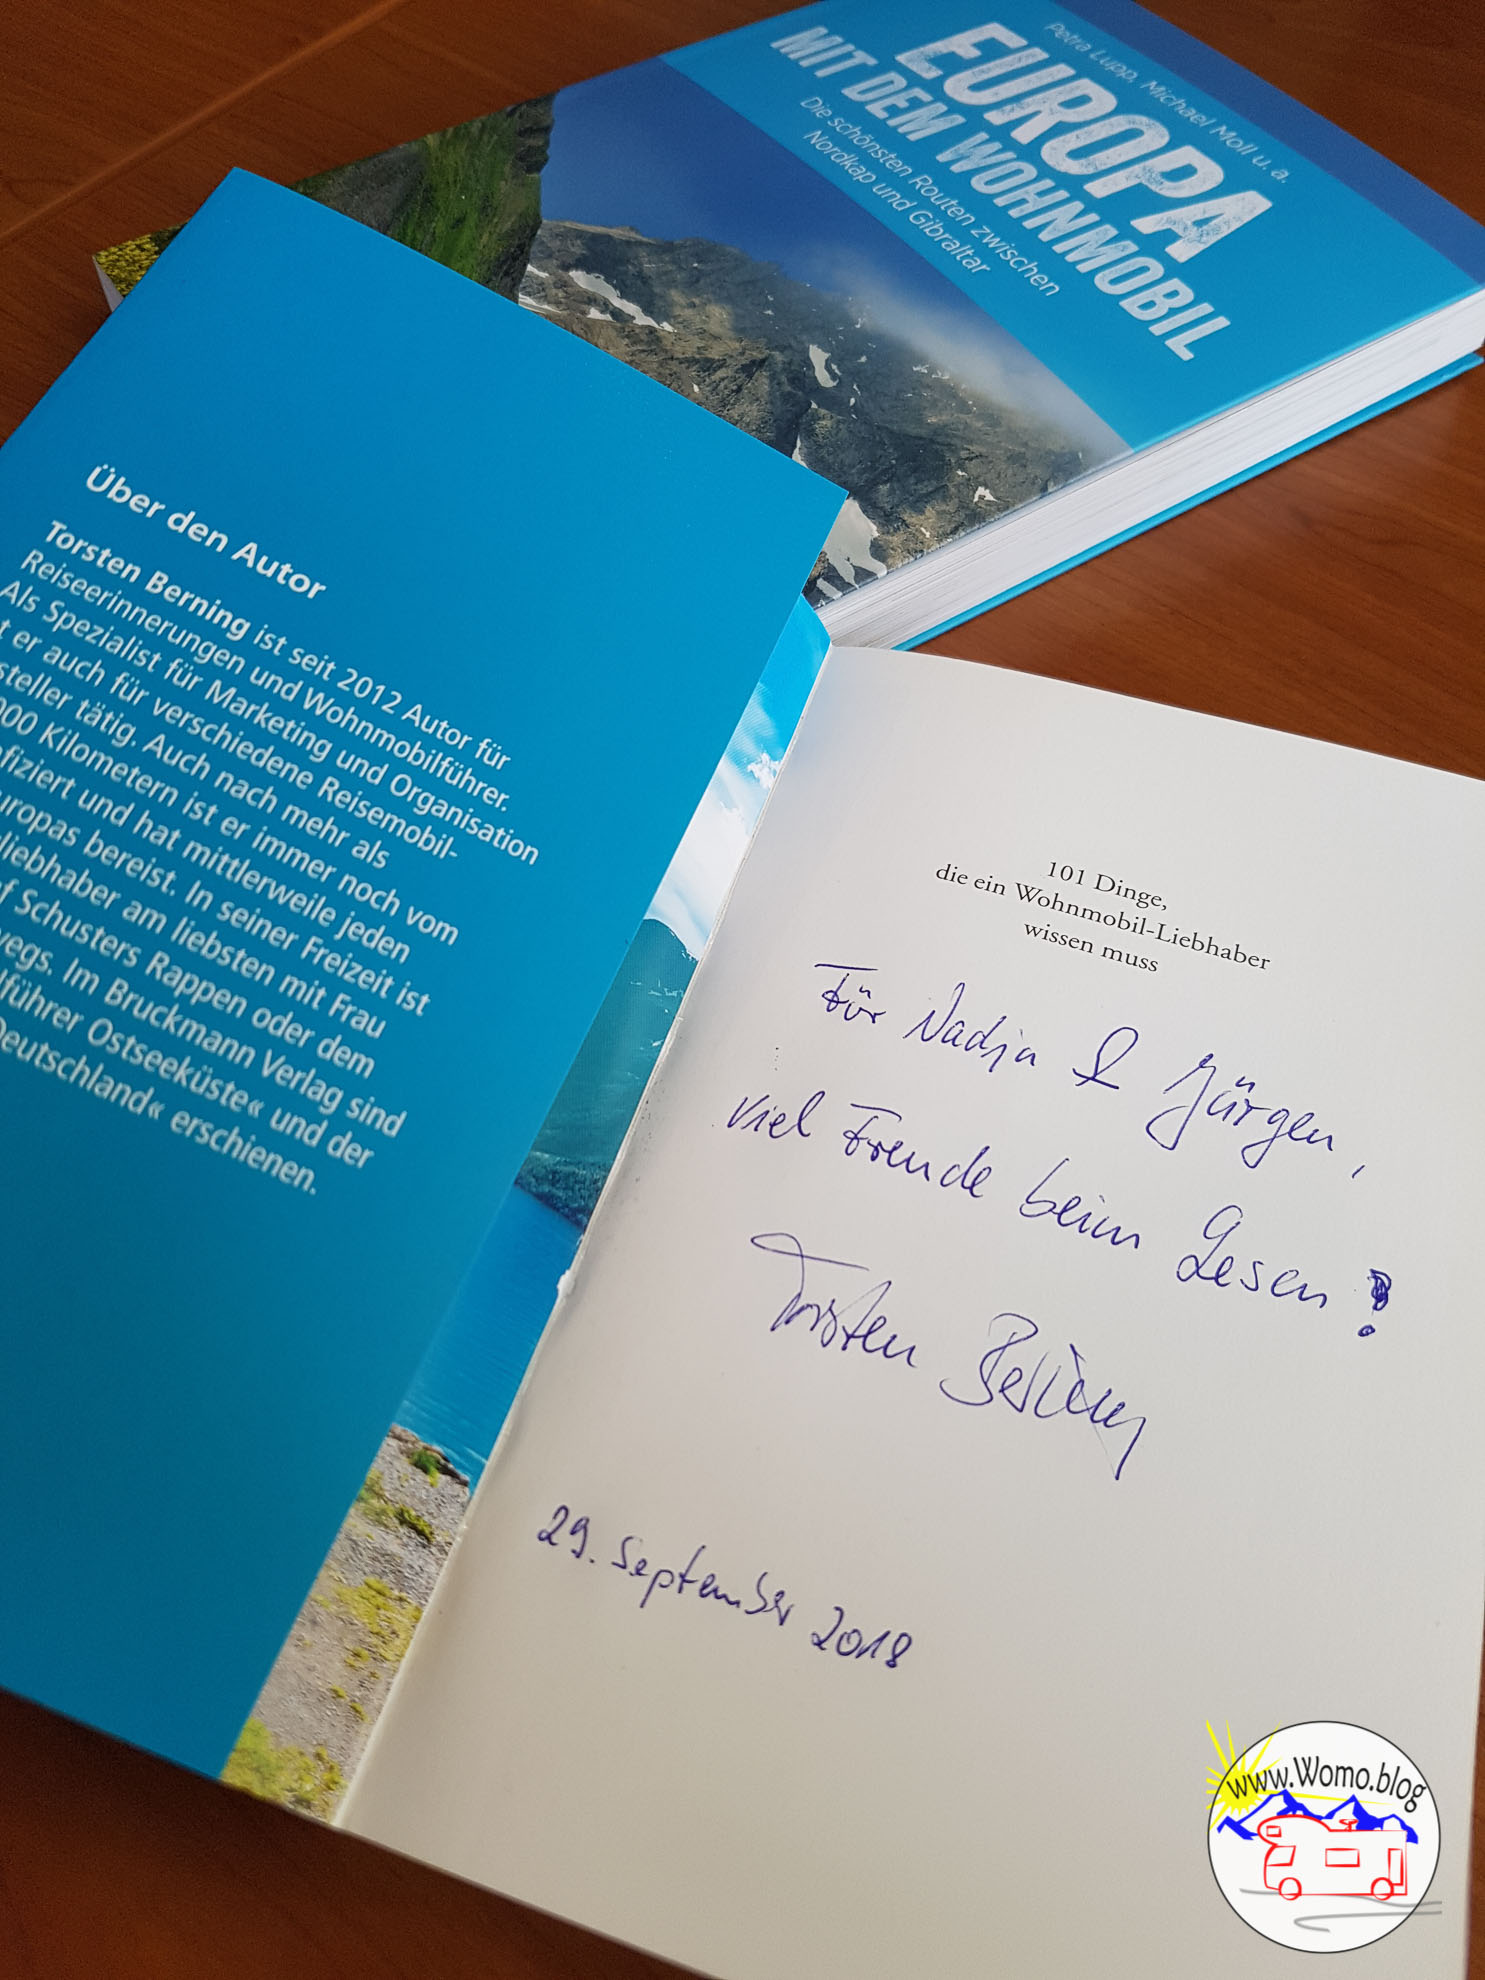 Petra Lupp, Michael Moll u. a.
EUROPA
MIT DEM WOHNMOBIL
Die schönsten Routen zwischen
Nordkap und Gibraltar
Über den Autor
Torsten Berning ist seit 2012 Autor für
Reiseerinnerungen und Wohnmobilführer.
Als Spezialist für Marketing und Organisation
t er auch für verschiedene Reisemobil-
steller tätig. Auch nach mehr als
000 Kilometern ist er immer noch vom
fiziert und hat mittlerweile jeden
uropas bereist. In seiner Freizeit ist
liebhaber am liebsten mit Frau
f Schusters Rappen oder dem
wegs. Im Bruckmann Verlag sind
lführer Ostseeküste« und der
Deutschland« erschienen.
101 Dinge,
die ein Wohnmobil-Liebhaber
wissen muss
Für Nadja & Jürgen,
viel Freude beim Lesen!
Torsten Berning
29. September 2018
www.Womo.blog